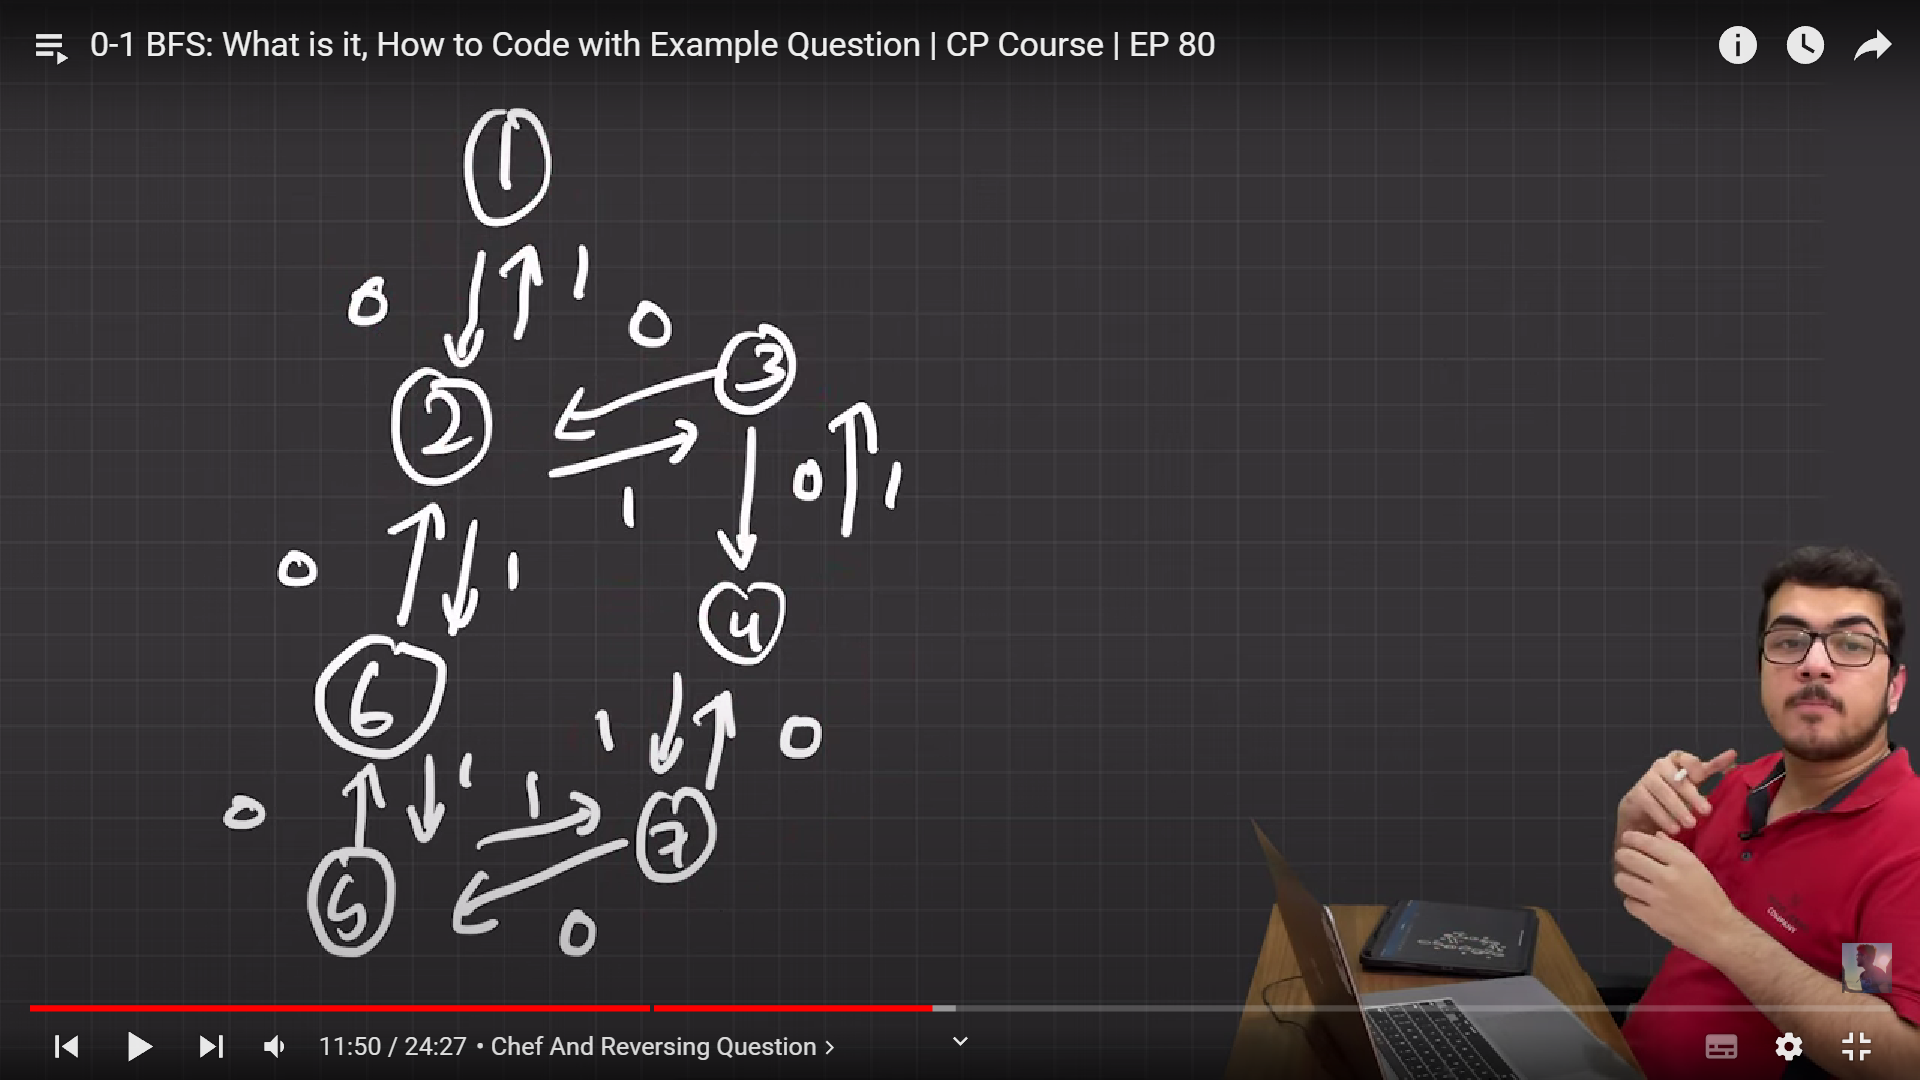 0-1 BFS: What is it, How to Code with Example Question | CP Course | EP 80
1
0 1
0
3
2
1
0 1
0 1
4
6
1 0
1
0 1
7
5
0
COMPANY
11:50 / 24:27 • Chef And Reversing Question >